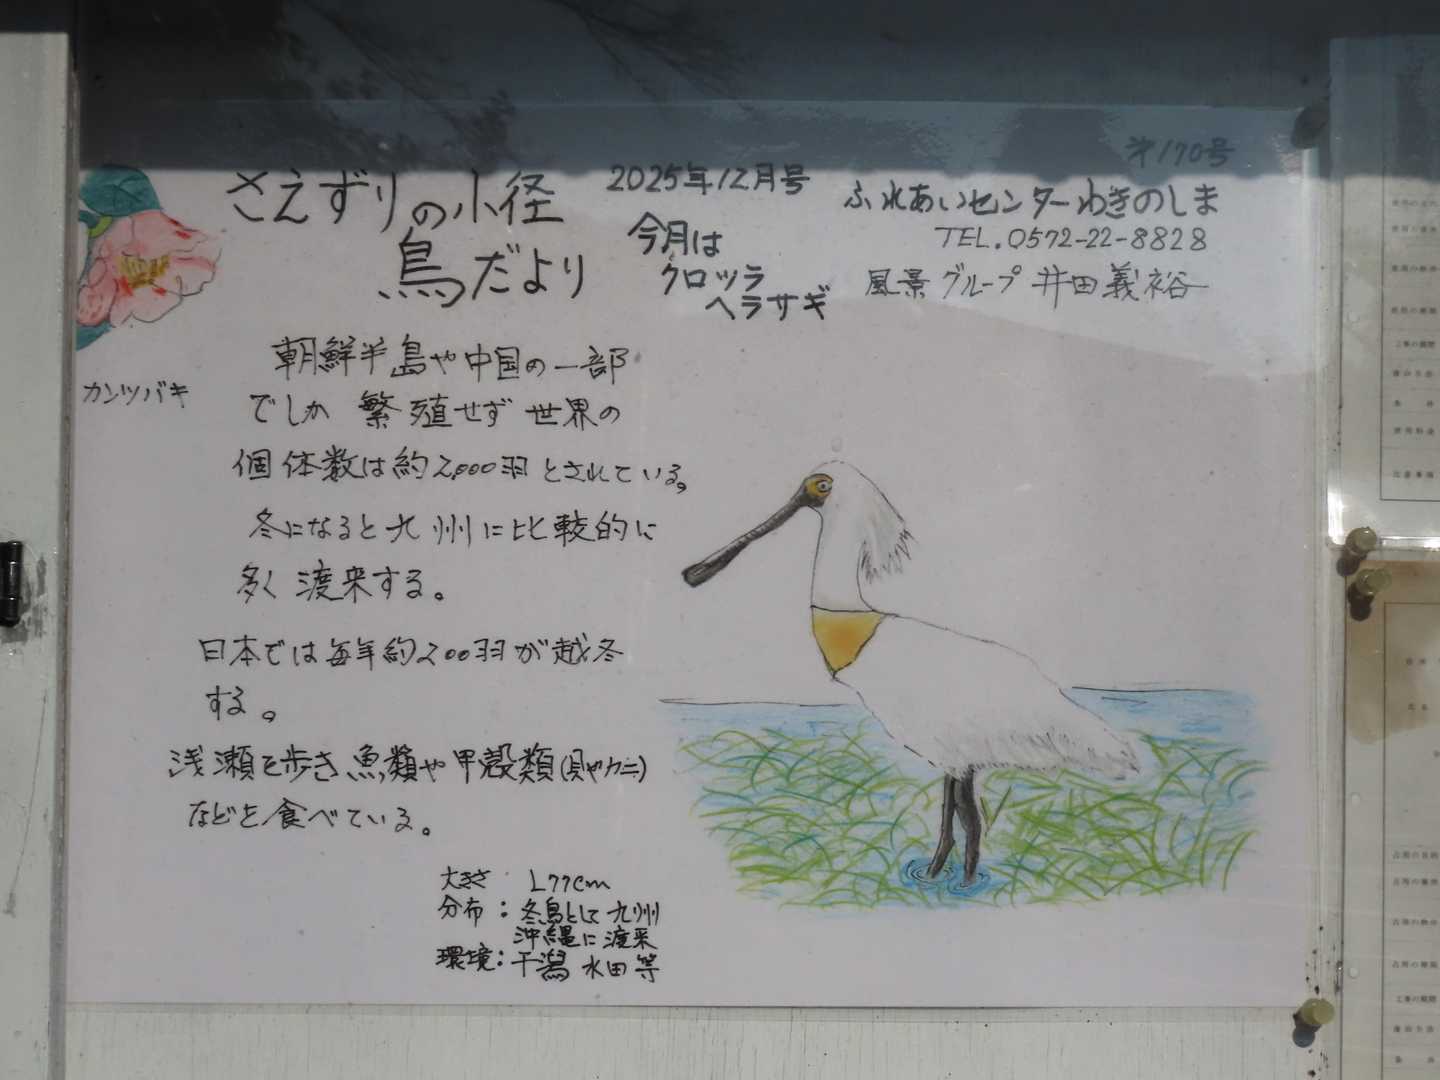 第170号
さえずりの小径
鳥だより
2025年12月号
今月は
クロツラ
ヘラサギ
ふれあいセンターわきのしま
TEL.0572-22-8828
風景グループ 井田義裕
カンツバキ
朝鮮半島や中国の一部
でしか 繁殖せず 世界の
個体数は約2,000羽とされている。
冬になると九州に比較的に
多く渡来する。
日本では毎年約200羽が越冬
する。
浅瀬を歩き魚類や甲殻類(貝やカニ)
などを食べている。
大きさ L77cm
分布：冬鳥として九州
沖縄に渡来
環境：干潟 水田等